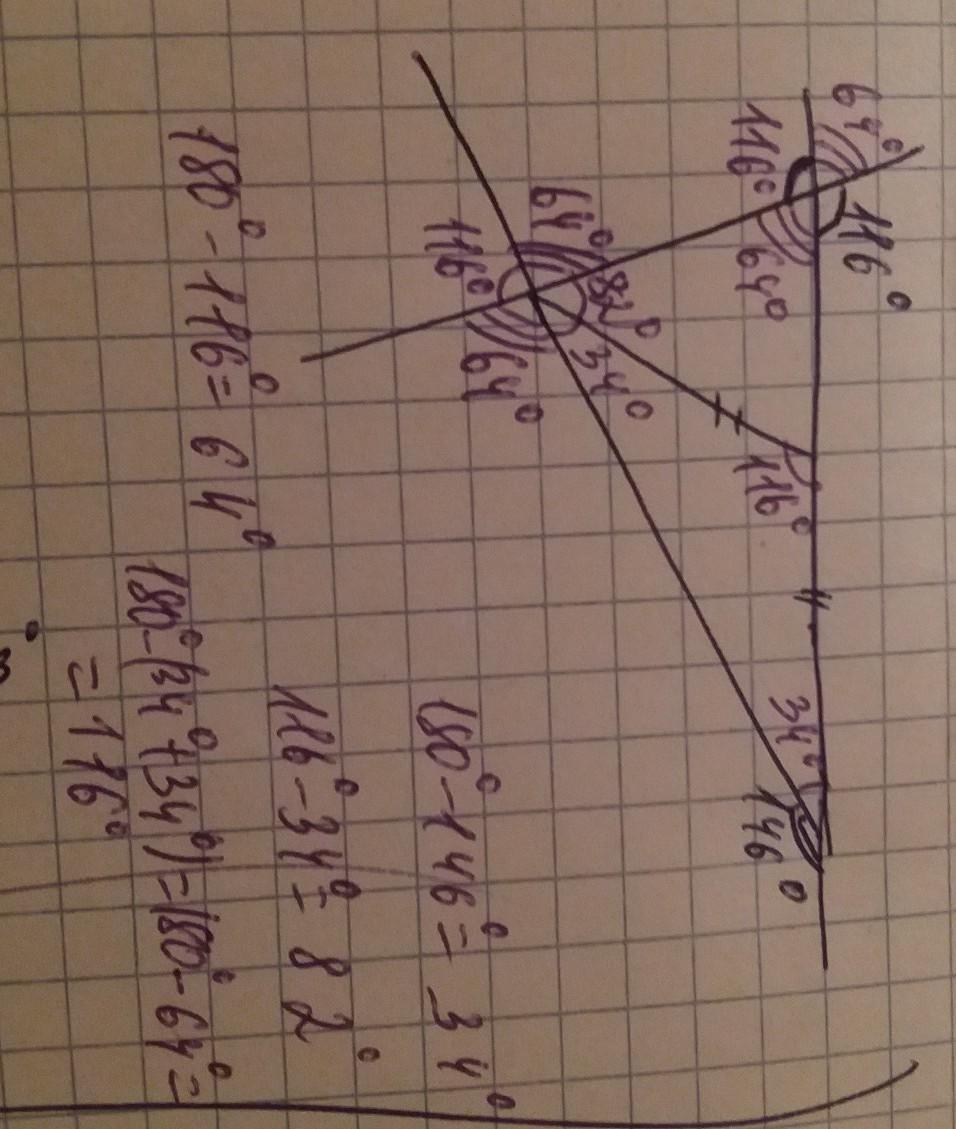 64°
116°
116°
64°
116°
34°
146°
64°
82°
34°
116°
64°
180° - 116° = 64°
180° - 146° = 34°
116° - 34° = 82°
180° - (34° + 34°) = 180° - 64° =
= 116°